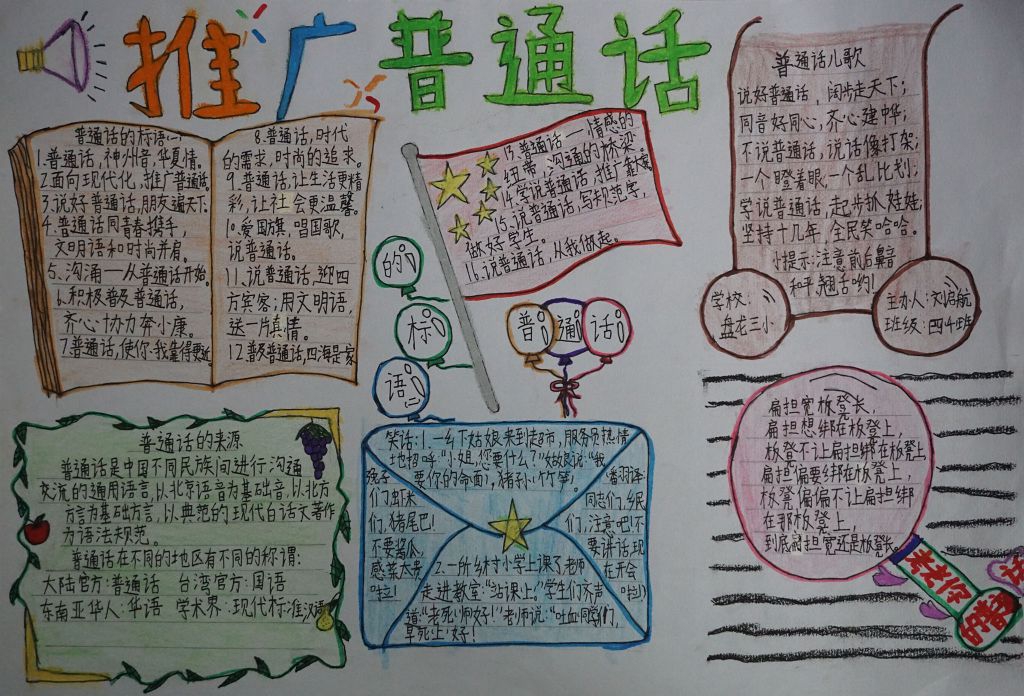 推广普通话
普通话的标语(一)
1.普通话,神州音,华夏情。
2.面向现代化,推广普通话。
3.说好普通话,朋友遍天下。
4.普通话同青春携手,
文明语和时尚并肩。
5.沟通——从普通话开始。
6.积极普及普通话,
齐心协力奔小康。
7.普通话,使你我靠得更近。
8.普通话,时代
的需求,时尚的追求。
9.普通话,让生活更精
彩,让社会更温馨。
10.爱国旗,唱国歌,
说普通话。
11.说普通话,迎四
方宾客;用文明语,
送一片真情。
12.普及普通话,四海是一家
13.普通话——情感的
纽带,沟通的桥梁。
14.学说普通话,推广
15.说普通话,写规范字,
做好学生。
16.说普通话,从我做起。
普通话
的标语(二)
普通话儿歌
说好普通话,阔步走天下;
同音好同心,齐心建中华;
不说普通话,说话像打架;
一个瞪着眼,一个乱比划;
学说普通话,起步抓娃娃,
坚持十几年,全民笑哈哈。
小提示:注意前后鼻音
和平,翘舌哟!
学校:
盘龙三小
主办人:刘启航
班级:四4班
普通话的来源
普通话是中国不同民族间进行沟通
交流的通用语言,以北京语音为基础音,以北方
方言为基础方言,以典范的现代白话文著作
为语法规范。
普通话在不同的地区有不同的称谓:
大陆官方:普通话 台湾官方:国语
东南亚华人:华语 学术界:现代标准汉语
笑话:1.一乡下姑娘来到超市,服务员热情
地招呼:“小姐,您要什么?”姑娘说:“我
要你的命面,猪孙(竹笋)。”
一番羽译
孩子
们,虾米
们,猪尾巴!
不要酱瓜,
咸菜太贵
啦!
同志们,乡民
们,注意吧!不
要讲话,现
在开会
啦!)
2.一所乡村小学上课了,老师
走进教室:“站课上,”学生们齐声
道:“老死(师)好!”老师说:“吐血(同学)们,
早死(上)好!
扁担宽板凳长,
扁担想绑在板登上,
板登不让扁担绑在板凳上
扁担偏要绑在板凳上,
板凳偏偏不让扁担绑
在那板登上,
到底扁担宽还是板凳长。
考考你
的普
话